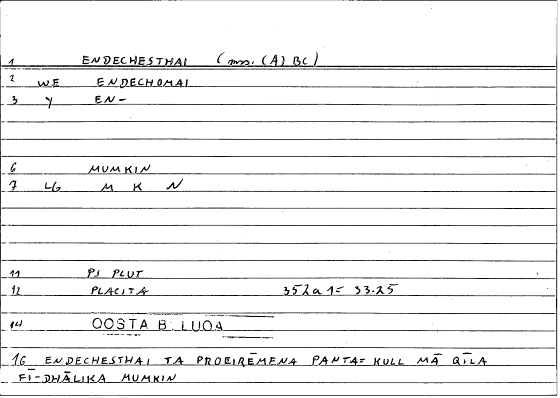 1 ENDECHESTHAI (mss. (A) BC)
2 WE ENDECHOMAI
3 Y EN-
6 MUMKIN
7 LG M K N
11 PS PLUT
12 PLACITA 352a1= 33.25
14 QOSTA B. LUQA
16 ENDECHESTHAI TA PROEIRĒMENA PANTA= KULL MĀ QĪLA
FĪ-DHĀLIKA MUMKIN